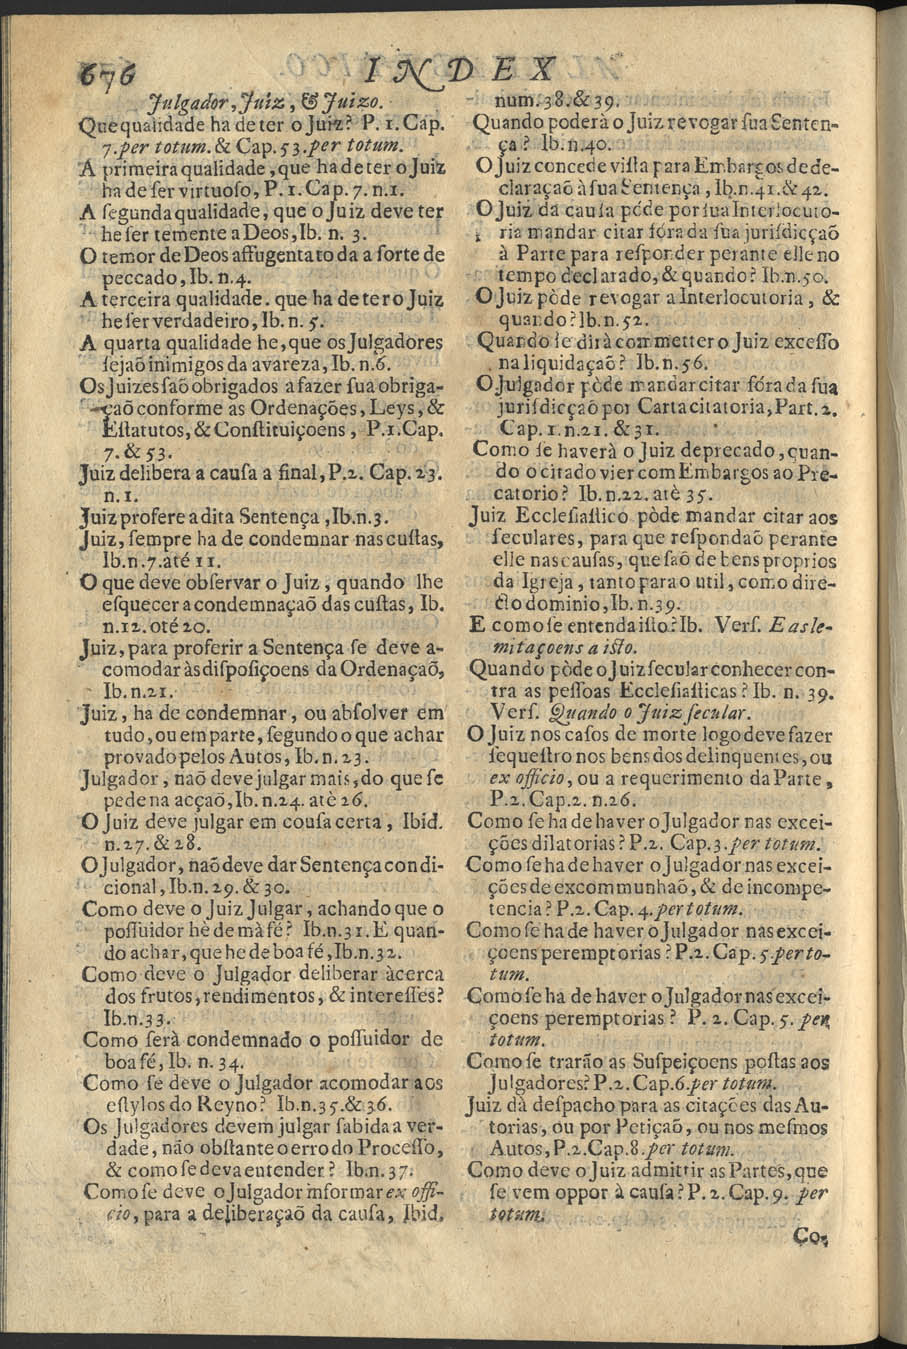 676
INDEX
Julgador, Juiz, & Juizo.
Que qualidade ha de ter o Juiz? P. 1. Cap.
7. per totum. & Cap. 53. per totum.
A primeira qualidade, que ha de ter o Juiz
ha de ſer virtuoſo, P. 1. Cap. 7. n. 1.
A ſegunda qualidade, que o Juiz deve ter
he ſer temente a Deos, Ib. n. 3.
O temor de Deos affugenta toda a ſorte de
peccado, Ib. n. 4.
A terceira qualidade. que ha de ter o Juiz
he ſer verdadeiro, Ib. n. 5.
A quarta qualidade he, que os Julgadores
ſejaõ inimigos da avareza, Ib. n. 6.
Os Juizes ſaõ obrigados a fazer ſua obriga-
çaõ conforme as Ordenações, Leys, &
Eſtatutos, & Conſtituiçoens, P. 1. Cap.
7. & 53.
Juiz delibera a cauſa a final, P. 2. Cap. 23.
n. 1.
Juiz profere a dita Sentença, Ib. n. 3.
Juiz, ſempre ha de condemnar nas cuſtas,
Ib. n. 7. até 11.
O que deve obſervar o Juiz, quando lhe
eſquecer a condemnaçaõ das cuſtas, Ib.
n. 12. oté 20.
Juiz, para proferir a Sentença ſe deve a-
comodar às diſpoſiçoens da Ordenaçaõ,
Ib. n. 21.
Juiz, ha de condemnar, ou abſolver em
tudo, ou em parte, ſegundo o que achar
provado pelos Autos, Ib. n. 23.
Julgador, naõ deve julgar mais, do que ſe
pede na acçaõ, Ib. n. 24. atè 26.
O Juiz deve julgar em couſa certa, Ibid.
n. 27. & 28.
O Julgador, naõ deve dar Sentença condi-
cional, Ib. n. 29. & 30.
Como deve o Juiz Julgar, achando que o
poſſuidor hè de mà fé? Ib. n. 31. E quan-
do achar, que he de boa fé, Ib. n. 32.
Como deve o Julgador deliberar àcerca
dos frutos, rendimentos, & intereſſes?
Ib. n. 33.
Como ſerà condemnado o poſſuidor de
boa fé, Ib. n. 34.
Como ſe deve o Julgador acomodar aos
eſtylos do Reyno? Ib. n. 35. & 36.
Os Julgadores devem julgar ſabida a ver-
dade, não obſtante o erro do Proceſſo,
& como ſe deva entender? Ib. n. 37.
Como ſe deve o Julgador informar ex offi-
cio, para a deliberaçaõ da cauſa, Ibid.
num. 38. & 39.
Quando poderà o Juiz revogar ſua Senten-
ça? Ib. n. 40.
O Juiz concede viſta para Embargos de de-
claraçaõ à ſua Sentença, Ib. n. 41. & 42.
O Juiz da cauſa póde por ſua Interlocuto-
ria mandar citar fóra da ſua juriſdicçaõ
à Parte para reſponder perante elle no
tempo declarado, & quando? Ib. n. 50.
O Juiz pòde revogar a Interlocutoria, &
quando? Ib. n. 52.
Quando ſe dirà commetter o Juiz exceſſo
na liquidaçaõ? Ib. n. 56.
O Julgador pòde mandar citar fóra da ſua
juriſdicçaõ por Carta citatoria, Part. 2.
Cap. 1. n. 21. & 31.
Como ſe haverà o Juiz deprecado, quan-
do o citado vier com Embargos ao Pre-
catorio? Ib. n. 22. atè 35.
Juiz Eccleſiaſtico pòde mandar citar aos
ſeculares, para que reſpondaõ perante
elle nas cauſas, que ſaõ de bens proprios
da Igreja, tanto para o util, como dire-
cto dominio, Ib. n. 39.
E como ſe entenda iſto? Ib. Verſ. E as le-
mitaçoens a iſto.
Quando pòde o Juiz ſecular conhecer con-
tra as peſſoas Eccleſiaſticas? Ib. n. 39.
Verſ. Quando o Juiz ſecular.
O Juiz nos caſos de morte logo deve fazer
ſequeſtro nos bens dos delinquentes, ou
ex officio, ou a requerimento da Parte,
P. 2. Cap. 2. n. 26.
Como ſe ha de haver o Julgador nas excei-
ções dilatorias? P. 2. Cap. 3. per totum.
Como ſe ha de haver o Julgador nas excei-
ções de excommunhaõ, & de incompe-
tencia? P. 2. Cap. 4. per totum.
Como ſe ha de haver o Julgador nas excei-
çoens peremptorias? P. 2. Cap. 5. per to-
tum.
Como ſe ha de haver o Julgador nas excei-
çoens peremptorias? P. 2. Cap. 5. per
totum.
Como ſe trarão as Suſpeiçoens poſtas aos
Julgadores? P. 2. Cap. 6. per totum.
Juiz dà deſpacho para as citações das Au-
torias, ou por Petiçaõ, ou nos meſmos
Autos, P. 2. Cap. 8. per totum.
Como deve o Juiz admittir as Partes, que
ſe vem oppor à cauſa? P. 2. Cap. 9. per
totum.
Co-